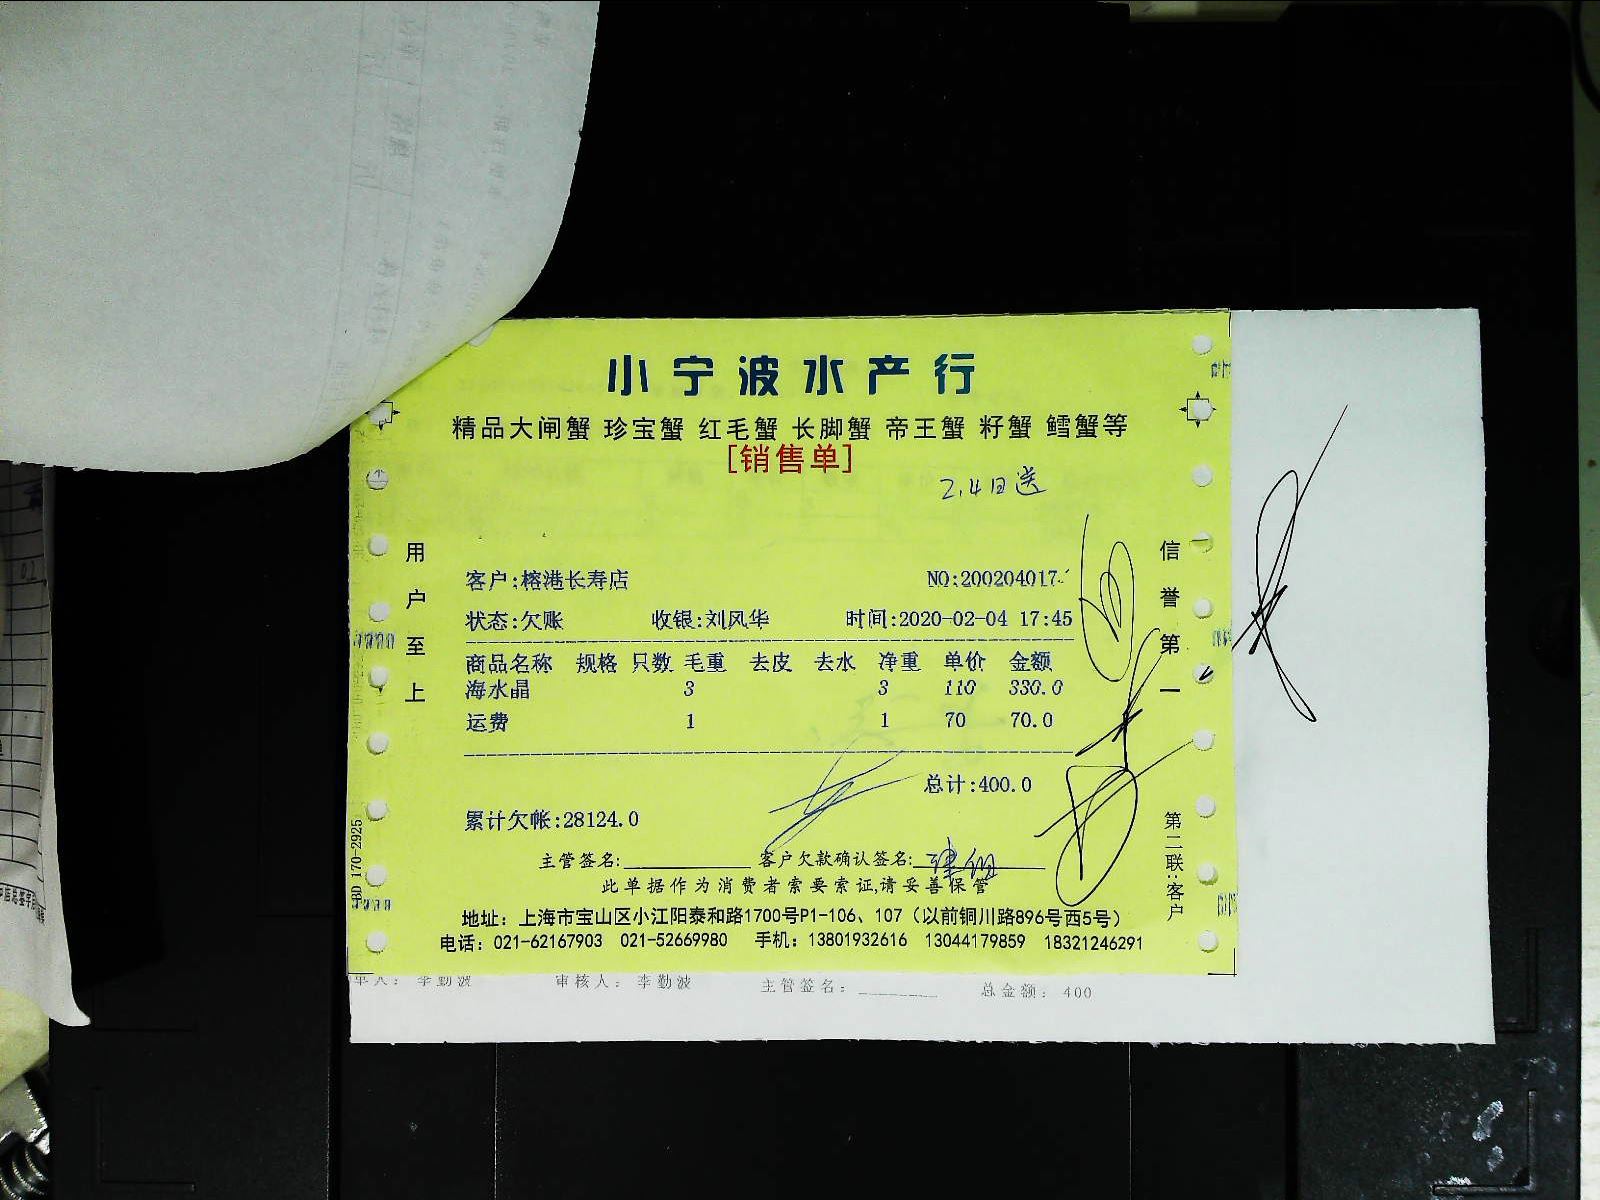 小宁波水产行
精品大闸蟹 珍宝蟹 红毛蟹 长脚蟹 帝王蟹 籽蟹 鳕蟹等
[销售单]
2.4日送
用户至上
信誉第一
客户:榕港长寿店 NO:200204017
状态:欠账 收银:刘风华 时间:2020-02-04 17:45
商品名称 规格 只数 毛重 去皮 去水 净重 单价 金额
海水晶 3 3 110 330.0
运费 1 1 70 70.0
总计:400.0
累计欠帐:28124.0
主管签名: 客户欠款确认签名:
此单据作为消费者索要索证,请妥善保管
地址：上海市宝山区小江阳泰和路1700号P1-106、107（以前铜川路896号西5号）
电话：021-62167903 021-52669980 手机：13801932616 13044179859 18321246291
第二联:客户
170-2925
单人： 李勤波 审核人： 李勤波 主管签名： 总金额： 400